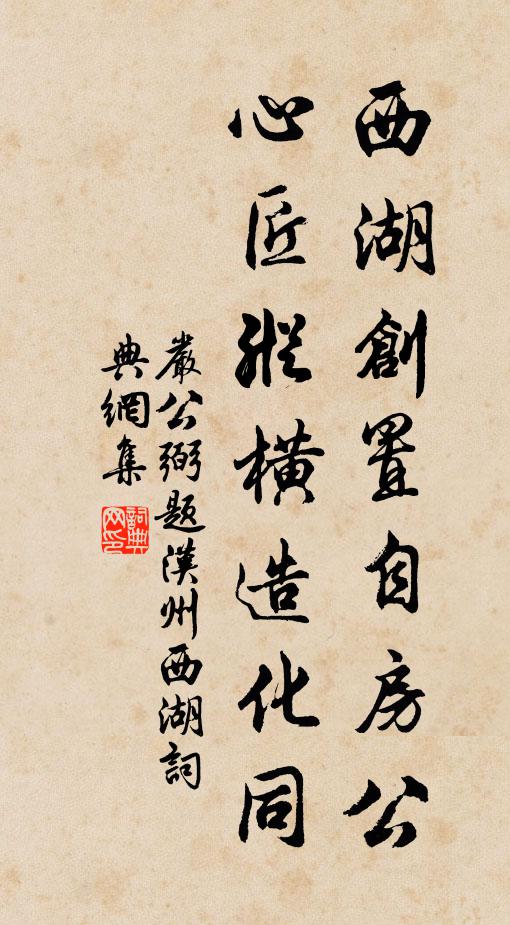 西湖創置自房公
心匠縱橫造化同
嚴公弼題漢州西湖詞
典網集
詞典
网印